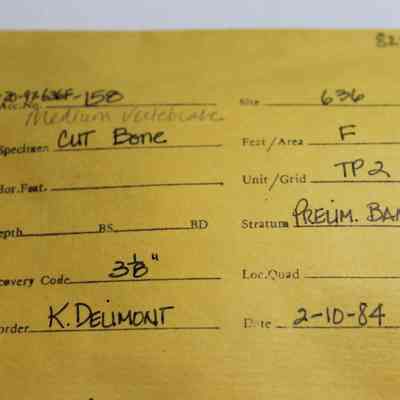 82
20-92-636F-158 Site 636
Acc.No.
Medium Vertebrate
Specimen CUT Bone Feat/Area F
Hor.Feat. Unit/Grid TP2
Depth BS BD Stratum PRELIM. BAN
covery Code 3 1/8" Loc.Quad
order K. DELIMONT Date 2-10-84